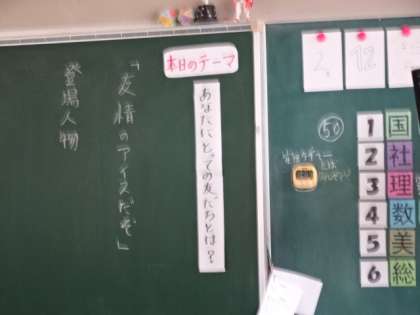 本日のテーマ
あなたにとっての友だちとは?
「友情のアイスだぞ」
登場人物
2
12
50
1 国
2 社
3 理
4 数
5 美
6 総